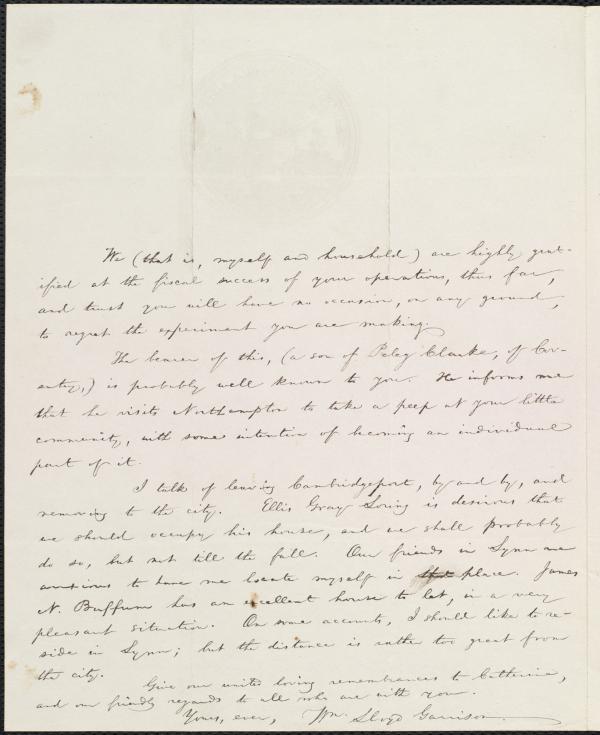 We (that is, myself and household) are highly grat-
ified at the fiscal success of your operations, thus far,
and trust you will have no occasion, on any ground,
to regret the experiment you are making.
The bearer of this, (a son of Peleg Clarke, of Cov-
entry,) is probably well known to you. He informs me
that he visits Northampton to take a peep at your little
community, with some intention of becoming an individual
part of it.
I talk of leaving Cambridgeport, by and by, and
removing to the city. Ellis Gray Loring is desirous that
we should occupy his house, and we shall probably
do so, but not till the fall. Our friends in Lynn are
anxious to have me locate myself in place. James
N. Buffum has an excellent house to let, in a very
pleasant situation. On some accounts, I should like to re-
side in Lynn; but the distance is rather too great from
the city.
Give our united loving remembrances to Catherine,
and our friendly regards to all who are with you.
Yours, ever, Wm. Lloyd Garrison.